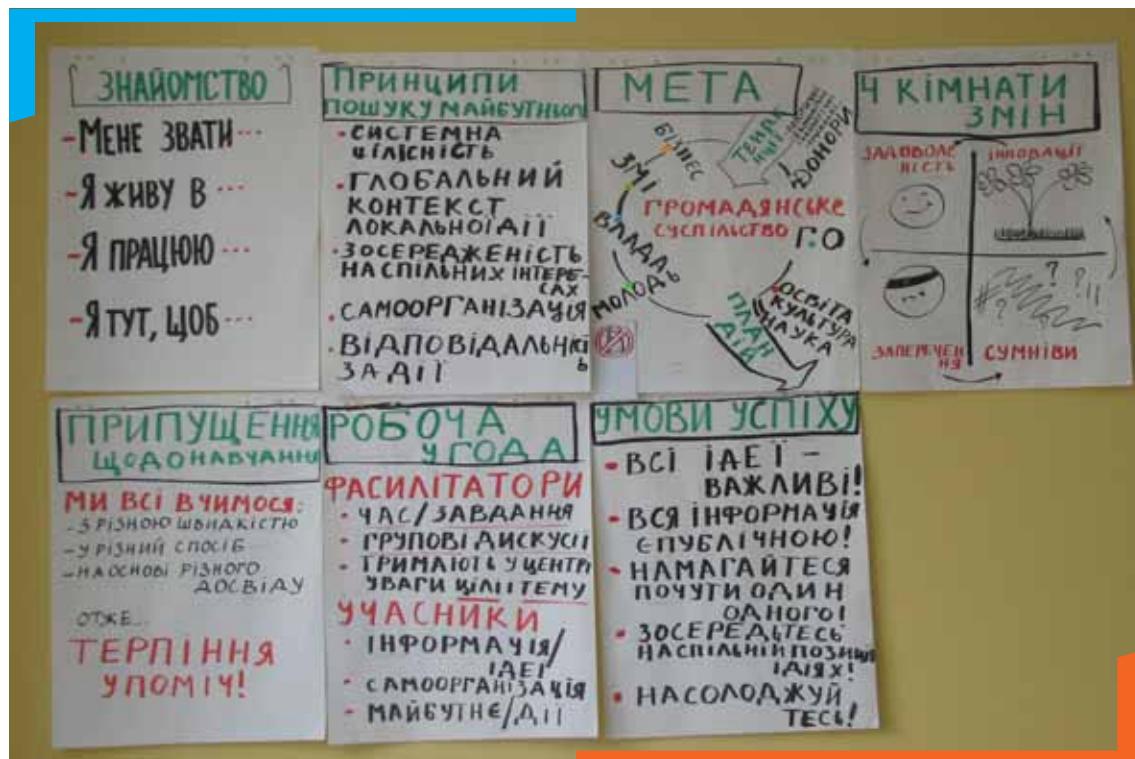 ЗНАЙОМСТВО
- МЕНЕ ЗВАТИ ...
- Я ЖИВУ В ...
- Я ПРАЦЮЮ ...
- Я ТУТ, ЩОБ ...
ПРИНЦИПИ
ПОШУКУ МАЙБУТНЬОГО
• СИСТЕМНА
ЦІЛІСНІСТЬ
• ГЛОБАЛЬНИЙ
КОНТЕКСТ
ЛОКАЛЬНОЇ ДІЇ
• ЗОСЕРЕДЖЕНІСТЬ
НА СПІЛЬНИХ ІНТЕРЕ-
САХ
• САМООРГАНІЗАЦІЯ
• ВІДПОВІДАЛЬНІСТЬ
ЗА ДІЇ
МЕТА
ТЕНДЕНЦІЇ
БІЗНЕС
ДОНОРИ
ЗМІ
ГРОМАДЯНСЬКЕ
СУСПІЛЬСТВО
ГО
ВЛАДА
МОЛОДЬ
ОСВІТА
КУЛЬТУРА
НАУКА
ПЛАН
ДІЙ
4 КІМНАТИ
ЗМІН
ЗАДОВОЛЕ
НІСТЬ
ІННОВАЦІЇ
ЗАПЕРЕЧЕН
НЯ
СУМНІВИ
ПРИПУЩЕННЯ
ЩОДО НАВЧАННЯ
МИ ВСІ ВЧИМОСЯ:
- З РІЗНОЮ ШВИДКІСТЮ
- У РІЗНИЙ СПОСІБ
- НА ОСНОВІ РІЗНОГО
ДОСВІДУ
ОТЖЕ...
ТЕРПІННЯ
У ПОМІЧ!
РОБОЧА
УГОДА
ФАСИЛІТАТОРИ
- ЧАС/ЗАВДАННЯ
- ГРУПОВІ ДИСКУСІЇ
- ТРИМАЮТЬ У ЦЕНТРІ
УВАГИ ЦІЛІ І ТЕМУ
УЧАСНИКИ
- ІНФОРМАЦІЯ/
ІДЕЇ
- САМООРГАНІЗАЦІЯ
- МАЙБУТНЄ/ДІЇ
УМОВИ УСПІХУ
• ВСІ ІДЕЇ -
ВАЖЛИВІ!
• ВСЯ ІНФОРМАЦІЯ
Є ПУБЛІЧНОЮ!
• НАМАГАЙТЕСЯ
ПОЧУТИ ОДИН
ОДНОГО!
• ЗОСЕРЕДЬТЕСЬ
НА СПІЛЬНІЙ ПОЗИЦІЇ
ІДІЯХ!
• НАСОЛОДЖУЙ
ТЕСЬ!